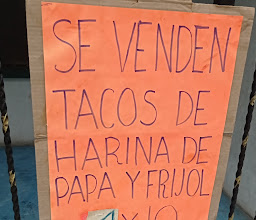 SE VENDEN
TACOS DE
HARINA DE
PAPA Y FRIJOL